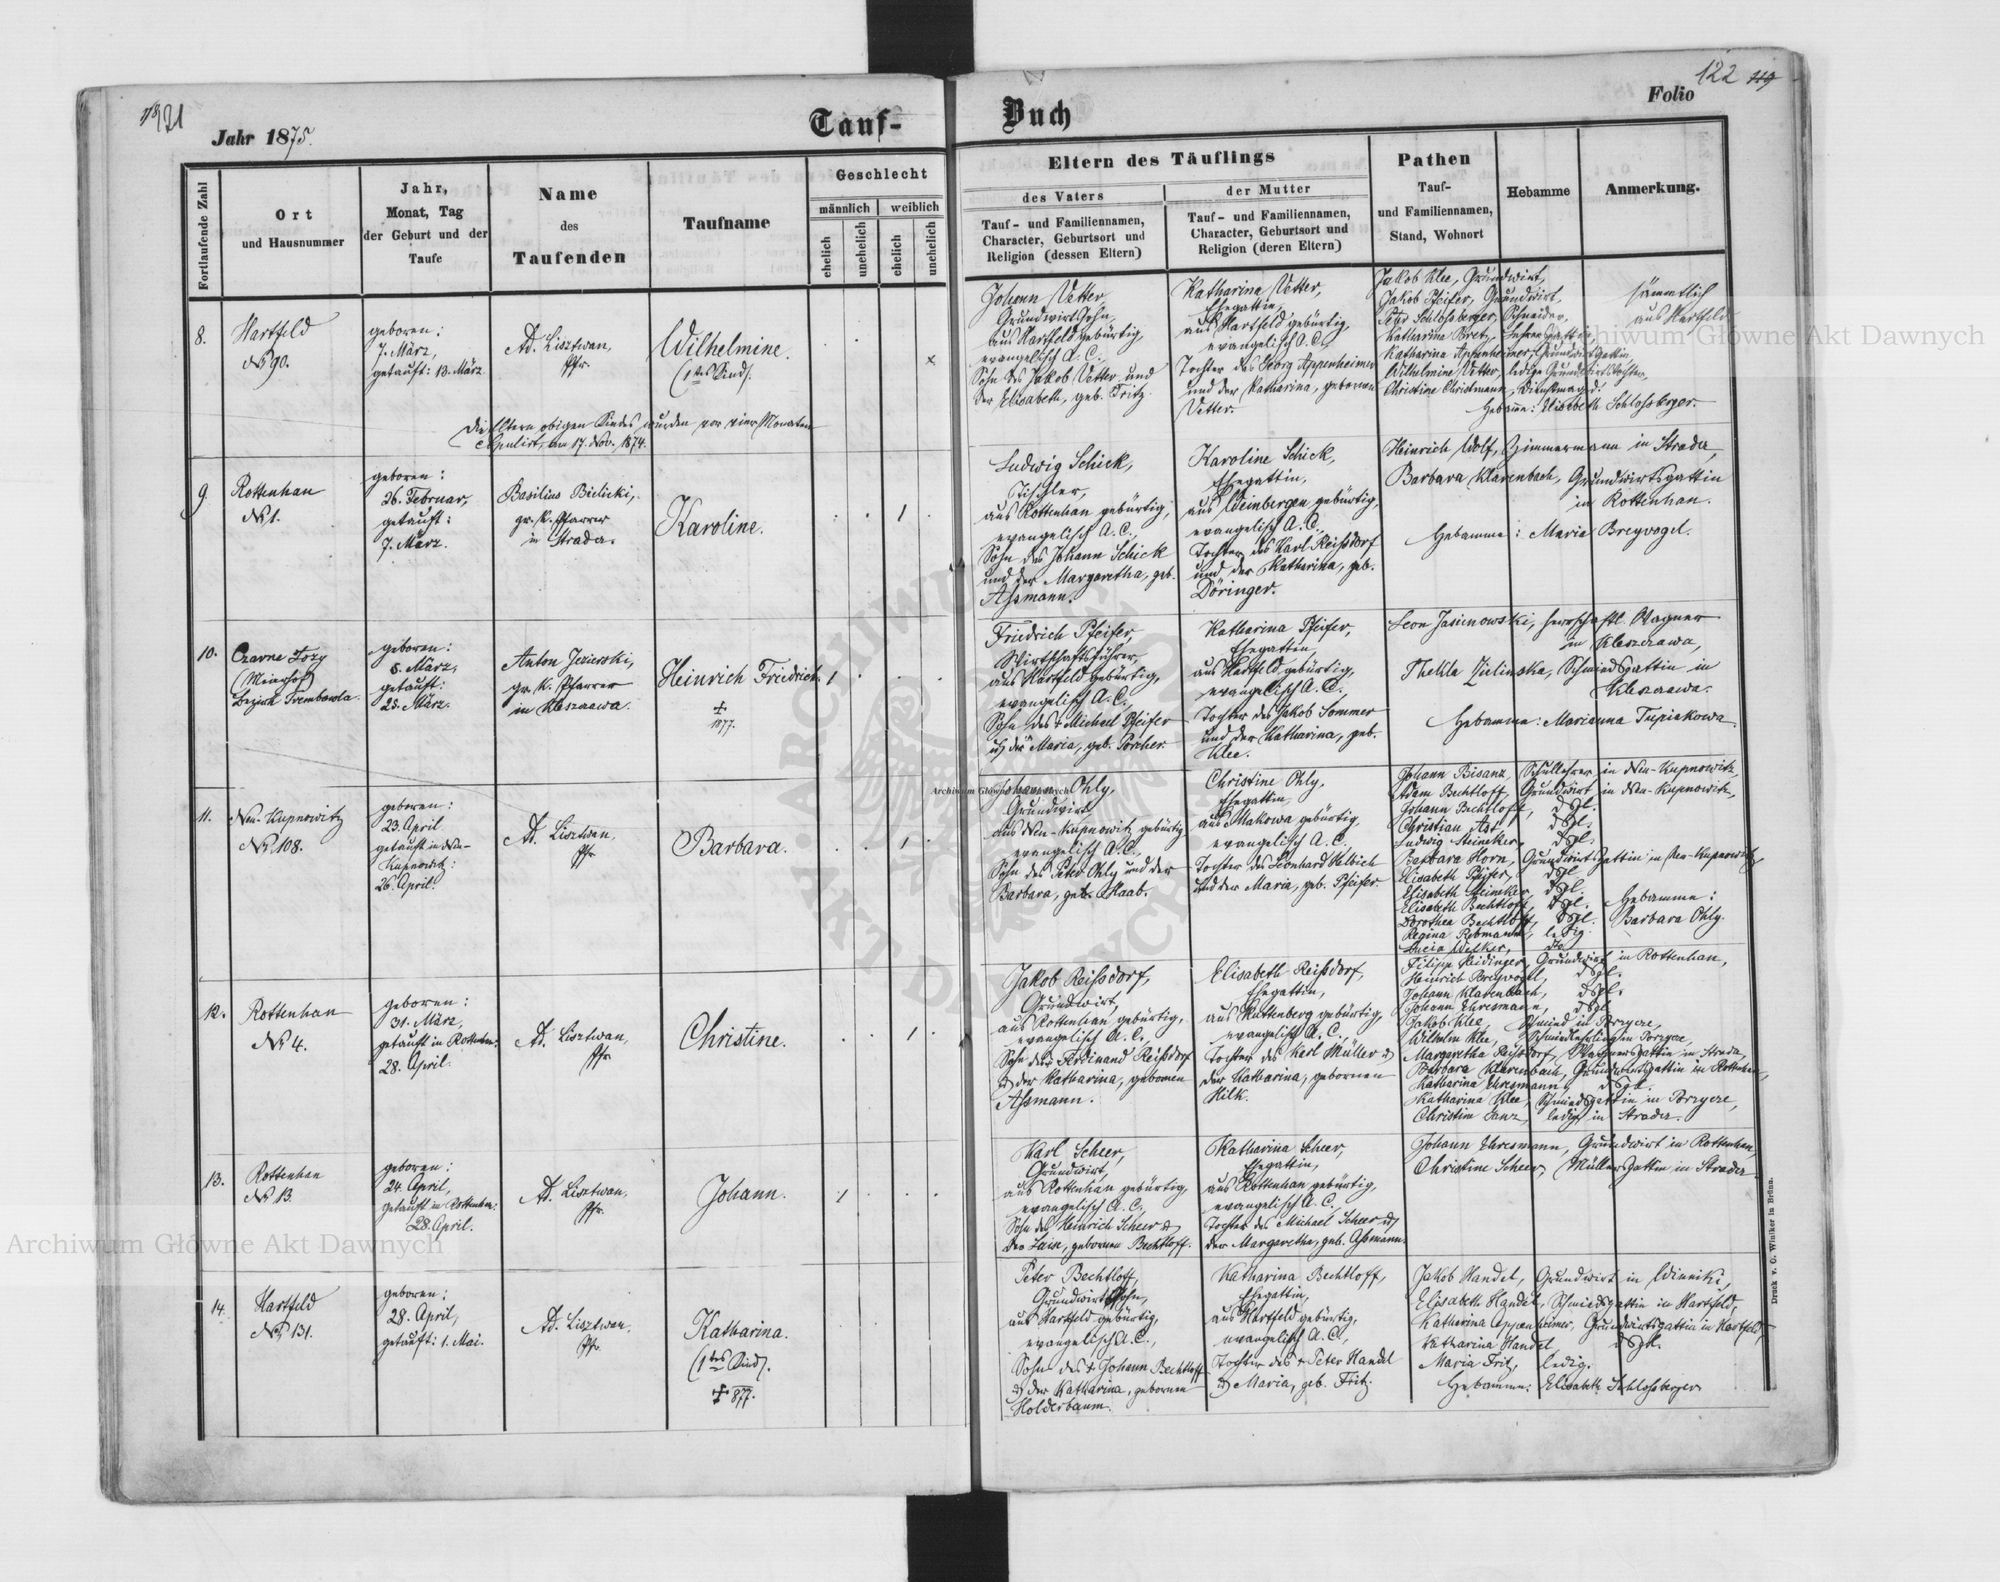 122
Jahr 1875.
Tauf-
Buch
Folio
Fortlaufende Zahl
Ort
und Hausnummer
Jahr,
Monat, Tag
der Geburt und der
Taufe
Name
des
Taufenden
Taufname
Geschlecht
männlich
weiblich
ehelich
unehelich
ehelich
unehelich
Eltern des Täuflings
des Vaters
Tauf- und Familiennamen,
Character, Geburtsort und
Religion (dessen Eltern)
der Mutter
Tauf- und Familiennamen,
Character, Geburtsort und
Religion (deren Eltern)
Pathen
Tauf-
und Familiennamen,
Stand, Wohnort
Hebamme
Anmerkung.
8.
Hartfeld
No 90.
geboren:
7. März,
getauft: 13. März
Ad. Lisztwan,
Pfr.
Wilhelmine.
(1tes Kind).
x
Johann Vetter,
Grundwirts Sohn,
aus Hartfeld gebürtig,
evangelisch A. C.,
Sohn des Jakob Vetter und
der Elisabeth, geb. Fritz.
Katharina Vetter,
Ehegattin,
aus Hartfeld gebürtig,
evangelisch A. C.,
Tochter des Georg Appenheimer
und der Katharina, geborenen
Vetter.
Jakob Klee, Grundwirt,
Jakob Pfeifer, Grundwirt,
Peter Schlossberger, Schneider,
Katharina
Katharina Appenheimer, Grundwirtsgattin,
Wilhelmine Vetter, ledige Grundwirtstochter,
Christine Christmann, Dienstmagd.
Hebamme: Elisabeth Schlossberger.
sämmtlich
aus Hartfeld
Die Eltern obigen Kindes wurden vor vier Monaten
copulirt, am 17. Nov. 1874.
9
Rottenhan
No 1.
geboren:
26. Februar,
getauft:
7. März.
Basilius Bielicki,
gr. k. Pfarrer
in Strada.
Karoline.
1
Ludwig Schick,
Tischler,
aus Rottenhan gebürtig,
evangelisch A. C.,
Sohn des Johann Schick
und der Margaretha, geb.
Assmann.
Karoline Schick,
Ehegattin,
aus Weinbergen gebürtig,
evangelisch A. C.,
Tochter des Karl Reissdorf
und der Katharina, geb.
Döringer.
Heinrich Wolf, Zimmermann in Strada,
Barbara Klarenbach, Grundwirtsgattin
in Rottenhan.
Hebamme: Maria Breyvogel.
10.
Czarne
(Meierhof)
Bezirk Trembowla.
geboren:
5. März,
getauft:
25. März.
Anton Jezierski,
gr. k. Pfarrer
in
Heinrich Friedrich.
+
1877.
1
Friedrich Pfeifer,
Wirtschaftsführer,
aus Hartfeld gebürtig,
evangelisch A. C.,
Sohn des + Michael Pfeifer
u. der Maria, geb. Porcher.
Katharina Pfeifer,
Ehegattin,
aus Hartfeld gebürtig,
evangelisch A. C.,
Tochter des Jakob Sommer
und der Katharina, geb.
Klee.
Leon Jasinowski, herrschaftl. Wagner
in
Thekla Zielinska, Schmiedsgattin in
Hebamme: Marianna Tupiakowa.
11.
Neu-Kupnowitz
No 108.
geboren:
23. April
getauft in Neu-
Kupnowitz:
26. April.
Ad. Lisztwan,
Pfr.
Barbara.
1
Johann Ohly,
Grundwirt,
aus Neu-Kupnowitz gebürtig
evangelisch A. C.,
Sohn des Peter Ohly und der
Barbara, geb. Haab.
Christine Ohly,
Ehegattin,
aus Makowa gebürtig,
evangelisch A. C.,
Tochter des Leonhard Ulbrich
und der Maria, geb. Pfeifer.
Johann Bisanz, Schullehrer in Neu-Kupnowitz,
Adam Bechtloff, Grundwirt in Neu-Kupnowitz,
Johann Bechtloff, dsgl.
Christian Ast, dsgl.
Ludwig Steinecker, dsgl.
Barbara Horn, Grundwirtsgattin in Neu-Kupnowitz,
Elisabeth Pfeifer, dsgl.
Elisabeth Steinecker, dsgl.
Elisabeth Bechtloff, dsgl.
Dorothea Bechtloff, dsgl.
Regina Rebmann, ledig.
Lucia Welker, dto
Hebamme:
Barbara Ohly.
12.
Rottenhan
No 4.
geboren:
31. März,
getauft in Rottenhan:
28. April.
Ad. Lisztwan,
Pfr.
Christine.
1
Jakob Reissdorf,
Grundwirt,
aus Rottenhan gebürtig,
evangelisch A. C.,
Sohn des Ferdinand Reissdorf
u. der Katharina, gebornen
Assmann.
Elisabeth Reissdorf,
Ehegattin,
aus Kuttenberg gebürtig,
evangelisch A. C.,
Tochter des Karl Müller u.
der Katharina, gebornen
Hilk.
Filipp Keidinger, Grundwirt in Rottenhan,
Heinrich Breyvogel, dsgl.
Johann Klarenbach, dsgl.
Johann Ehresmann, dsgl.
Jakob Klee, Schmied in
Wilhelm Klee, Schmiedlehrling in
Margaretha Reissdorf, Wagnersgattin in Strada,
Barbara Klarenbach, Grundwirtsgattin in Rottenhan,
Katharina Ehresmann, dsgl.
Katharina Klee, Schmiedsgattin in
Christine Lanz, ledig in Strada.
13.
Rottenhan
No 13.
geboren:
24. April,
getauft in Rottenhan:
28. April.
Ad. Lisztwan,
Pfr.
Johann.
1
Karl Scheer,
Grundwirt,
aus Rottenhan gebürtig,
evangelisch A. C.,
Sohn des Heinrich Scheer u.
der Luise, gebornen Bechtloff.
Katharina Scheer,
Ehegattin,
aus Rottenhan gebürtig,
evangelisch A. C.,
Tochter des Michael Scheer u.
der Margaretha, geb. Assmann.
Johann Ehresmann, Grundwirt in Rottenhan,
Christine Scheer, Müllersgattin in Strada.
14.
Hartfeld
No 131.
geboren:
28. April,
getauft: 1. Mai.
Ad. Lisztwan,
Pfr.
Katharina.
(1tes Kind).
+ 877.
Peter Bechtloff,
Grundwirtssohn,
aus Hartfeld gebürtig,
evangelisch A. C.,
Sohn des + Johann Bechtloff
u. der Katharina, gebornen
Holderbaum.
Katharina Bechtloff,
Ehegattin,
aus Hartfeld gebürtig,
evangelisch A. C.,
Tochter des + Peter Handel
u. Maria, geb. Fritz.
Jakob Handel, Grundwirt in Winniki,
Elisabeth Handel, Schmiedsgattin in Hartfeld,
Katharina Appenheimer, Grundwirtsgattin in Hartfeld,
Katharina Handel, dsgl.
Maria Fritz, ledig.
Hebamme: Elisabeth Schlossberger.
Druck v. C. Winiker in Brünn.
Archiwum Główne Akt Dawnych
Archiwum Główne Akt Dawnych
Archiwum Główne Akt Dawnych